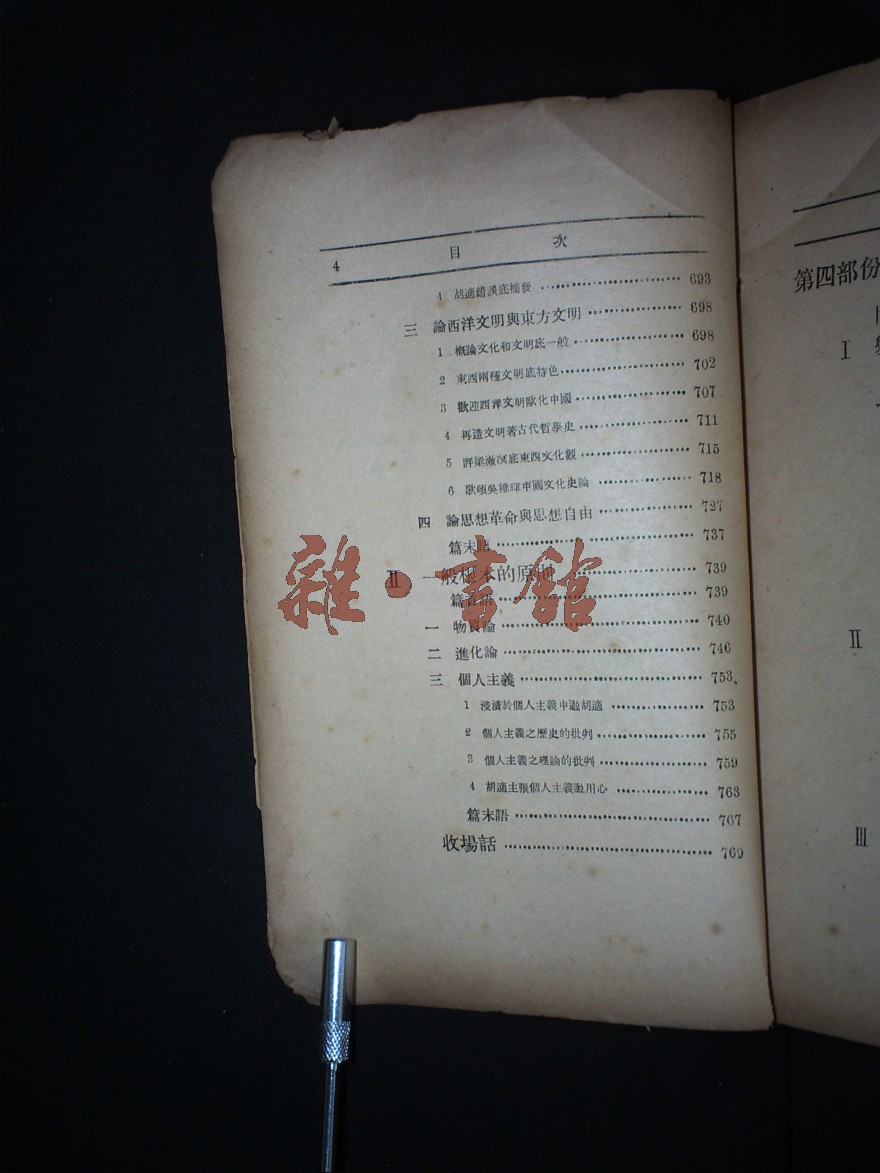 4 目次
4 胡適錯誤底摘發 693
三 論西洋文明與東方文明 698
1 概論文化和文明底一般 698
2 東西兩種文明底特色 702
3 歡迎西洋文明歐化中國 707
4 再造文明著古代哲學史 711
5 評梁漱溟底東西文化觀 715
6 歌頌吳稚暉中國文化史論 718
四 論思想革命與思想自由 727
篇末語 737
II 一般根本的原則 739
篇首語 739
一 物質論 740
二 進化論 746
三 個人主義 753、
1 浸漬於個人主義中 胡適 753
2 個人主義之歷史的批判 755
3 個人主義之理論的批判 759
4 胡適主張個人主義 用心 763
篇末語 767
收場話 769
第四部份
I
II
III
雜·書館